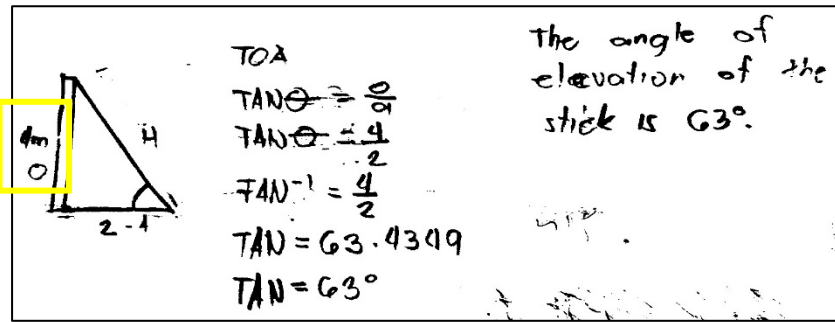 4m
O
H
2 - A
TOA
TANΘ = o/a
TANΘ = 4/2
TAN⁻¹ = 4/2
TAN = 63.4349
TAN = 63°
The angle of
elevation of the
stick is 63°.